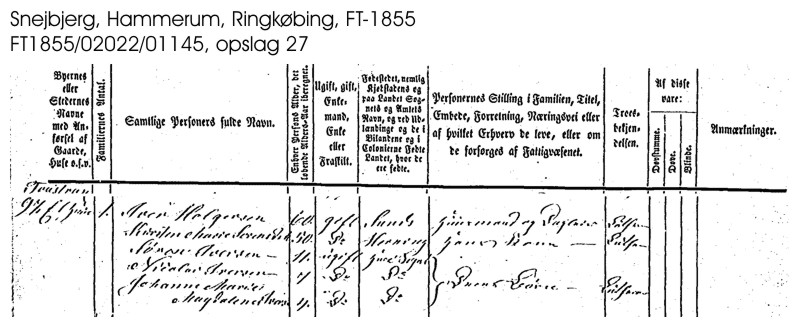 Snejbjerg, Hammerum, Ringkøbing, FT-1855
FT1855/02022/01145, opslag 27
Byernes eller Stedernes Navne med Anførsel af Gaarde, Huse o.s.v.
Familiernes Antal.
Samtlige Personers fulde Navn.
Enhver Persons Alder, det løbende Alders-Aar iberegnet.
Ugift, gift, Enkemand, Enke eller Fraskilt.
Fødestedet, nemlig Kjøbstadens og paa Landet Sognets og Amtets Navn, og ved Udlændinge og de i Bilandene og i Colonierne Fødte Landet, hvor de ere fødte.
Personernes Stilling i Familien, Titel, Embede, Forretning, Næringsvei eller af hvilket Erhverv de leve, eller om de forsørges af Fattigvæsenet.
Troesbekjendelsen.
Af disse vare:
Døvstumme.
Døve.
Blinde.
Anmærkninger.
Et Huus 1. Iver Holgersen 60. gift Sunds Huusmand og
Kirsten Marie 50. Do Herning Hans Kone —
Iversen — 11. ugift
Nicolai Iversen — 7 Do Do
Johanne Marie Deres Børn —
Magdalene 4. Do Do